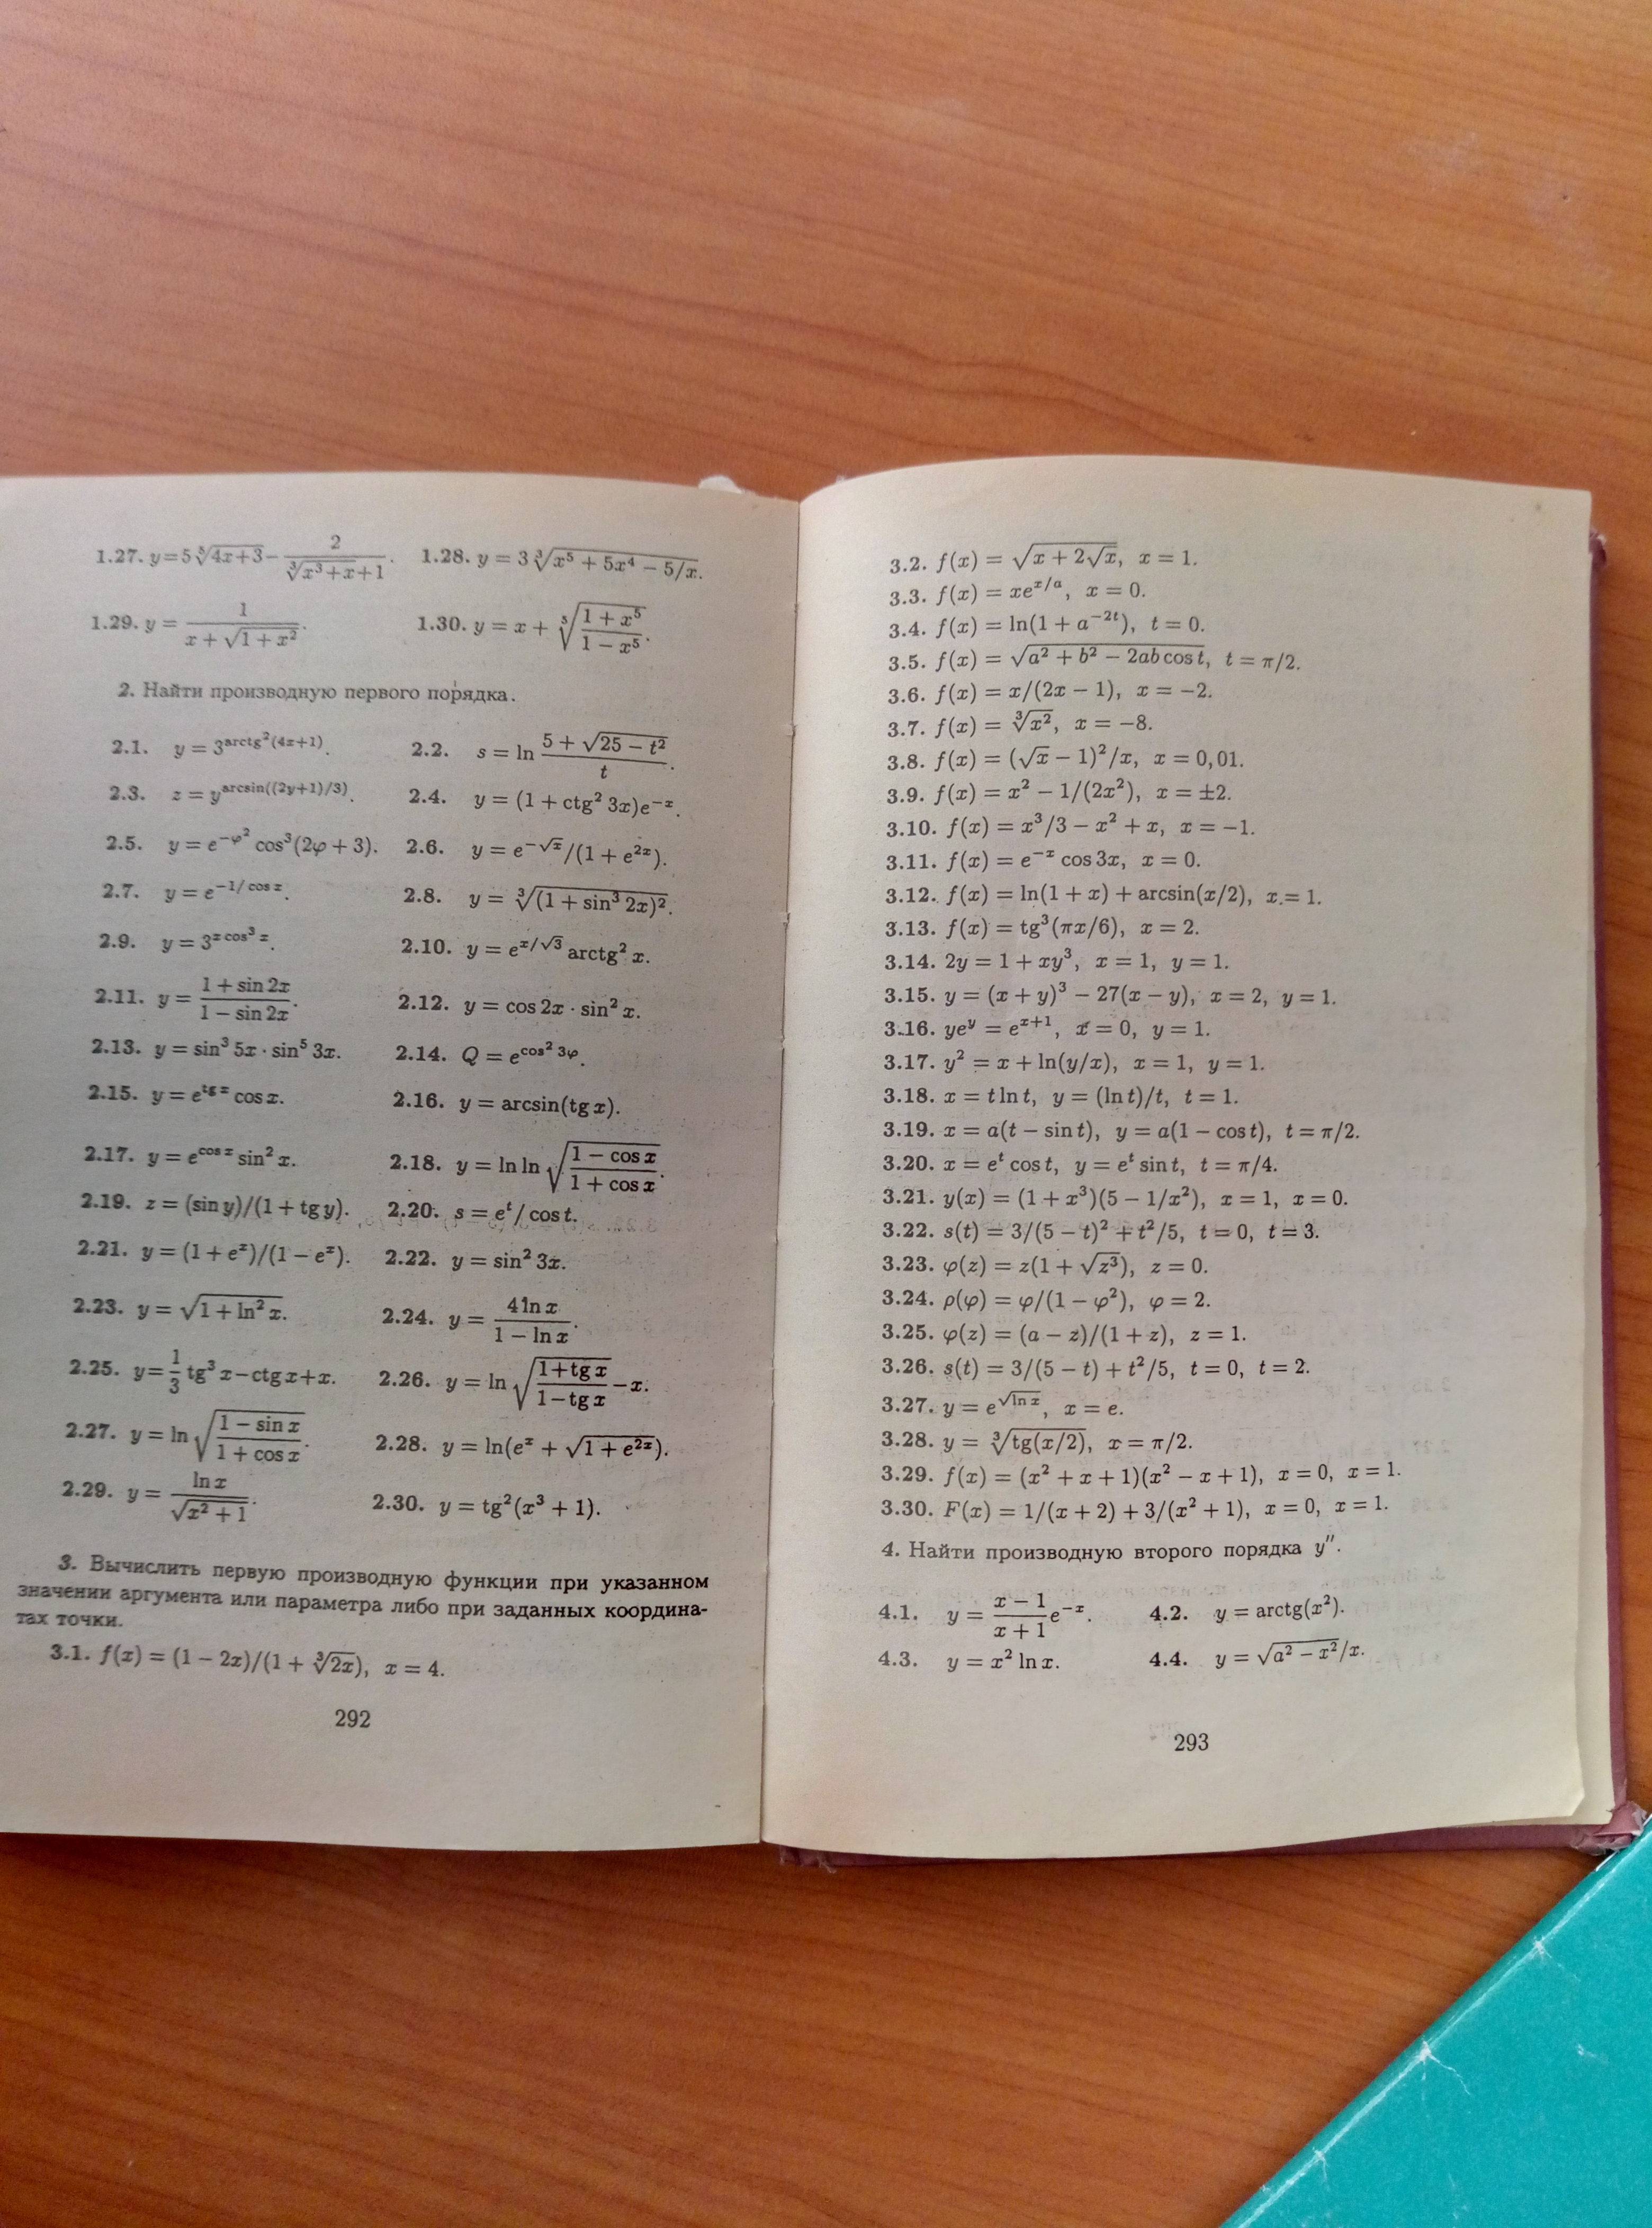 1.27. y=5⁵√(4x+3) − 2/(³√(x³+x)+1). 1.28. y = 3³√(x⁵ + 5x⁴ − 5/x).
1.29. y = 1/(x + √(1 + x²)). 1.30. y = x + ⁵√((1 + x⁵)/(1 − x⁵)).
2. Найти производную первого порядка.
2.1. y = 3^(arctg²(4x+1)). 2.2. s = ln (5 + √(25 − t²))/t.
2.3. z = y^(arcsin((2y+1)/3)). 2.4. y = (1 + ctg² 3x)e^(−x).
2.5. y = e^(−φ²) cos³(2φ + 3). 2.6. y = e^(−√x)/(1 + e^(2x)).
2.7. y = e^(−1/cos x). 2.8. y = ³√((1 + sin³ 2x)²).
2.9. y = 3^(x cos³ x). 2.10. y = e^(x/√3) arctg² x.
2.11. y = (1 + sin 2x)/(1 − sin 2x). 2.12. y = cos 2x · sin² x.
2.13. y = sin³ 5x · sin⁵ 3x. 2.14. Q = e^(cos² 3φ).
2.15. y = e^(tg x) cos x. 2.16. y = arcsin(tg x).
2.17. y = e^(cos x) sin² x. 2.18. y = ln ln √((1 − cos x)/(1 + cos x)).
2.19. z = (sin y)/(1 + tg y). 2.20. s = e^t/ cos t.
2.21. y = (1 + e^x)/(1 − e^x). 2.22. y = sin² 3x.
2.23. y = √(1 + ln² x). 2.24. y = (4 ln x)/(1 − ln x).
2.25. y = 1/3 tg³ x − ctg x + x. 2.26. y = ln √((1+tg x)/(1−tg x)) − x.
2.27. y = ln √((1 − sin x)/(1 + cos x)). 2.28. y = ln(e^x + √(1 + e^(2x))).
2.29. y = ln x/√(x² + 1). 2.30. y = tg²(x³ + 1).
3. Вычислить первую производную функции при указанном
значении аргумента или параметра либо при заданных координа-
тах точки.
3.1. f(x) = (1 − 2x)/(1 + ³√(2x)), x = 4.
292
3.2. f(x) = √(x + 2√x), x = 1.
3.3. f(x) = xe^(x/a), x = 0.
3.4. f(x) = ln(1 + a^(−2t)), t = 0.
3.5. f(x) = √(a² + b² − 2ab cos t), t = π/2.
3.6. f(x) = x/(2x − 1), x = −2.
3.7. f(x) = ³√(x²), x = −8.
3.8. f(x) = (√x − 1)²/x, x = 0,01.
3.9. f(x) = x² − 1/(2x²), x = ±2.
3.10. f(x) = x³/3 − x² + x, x = −1.
3.11. f(x) = e^(−x) cos 3x, x = 0.
3.12. f(x) = ln(1 + x) + arcsin(x/2), x = 1.
3.13. f(x) = tg³(πx/6), x = 2.
3.14. 2y = 1 + xy³, x = 1, y = 1.
3.15. y = (x + y)³ − 27(x − y), x = 2, y = 1.
3.16. ye^y = e^(x+1), x = 0, y = 1.
3.17. y² = x + ln(y/x), x = 1, y = 1.
3.18. x = t ln t, y = (ln t)/t, t = 1.
3.19. x = a(t − sin t), y = a(1 − cos t), t = π/2.
3.20. x = e^t cos t, y = e^t sin t, t = π/4.
3.21. y(x) = (1 + x³)(5 − 1/x²), x = 1, x = 0.
3.22. s(t) = 3/(5 − t)² + t²/5, t = 0, t = 3.
3.23. φ(z) = z(1 + √(z³)), z = 0.
3.24. ρ(φ) = φ/(1 − φ²), φ = 2.
3.25. φ(z) = (a − z)/(1 + z), z = 1.
3.26. s(t) = 3/(5 − t) + t²/5, t = 0, t = 2.
3.27. y = e^(√(ln x)), x = e.
3.28. y = ³√(tg(x/2)), x = π/2.
3.29. f(x) = (x² + x + 1)(x² − x + 1), x = 0, x = 1.
3.30. F(x) = 1/(x + 2) + 3/(x² + 1), x = 0, x = 1.
4. Найти производную второго порядка y″.
4.1. y = (x − 1)/(x + 1) e^(−x). 4.2. y = arctg(x²).
4.3. y = x² ln x. 4.4. y = √(a² − x²)/x.
293